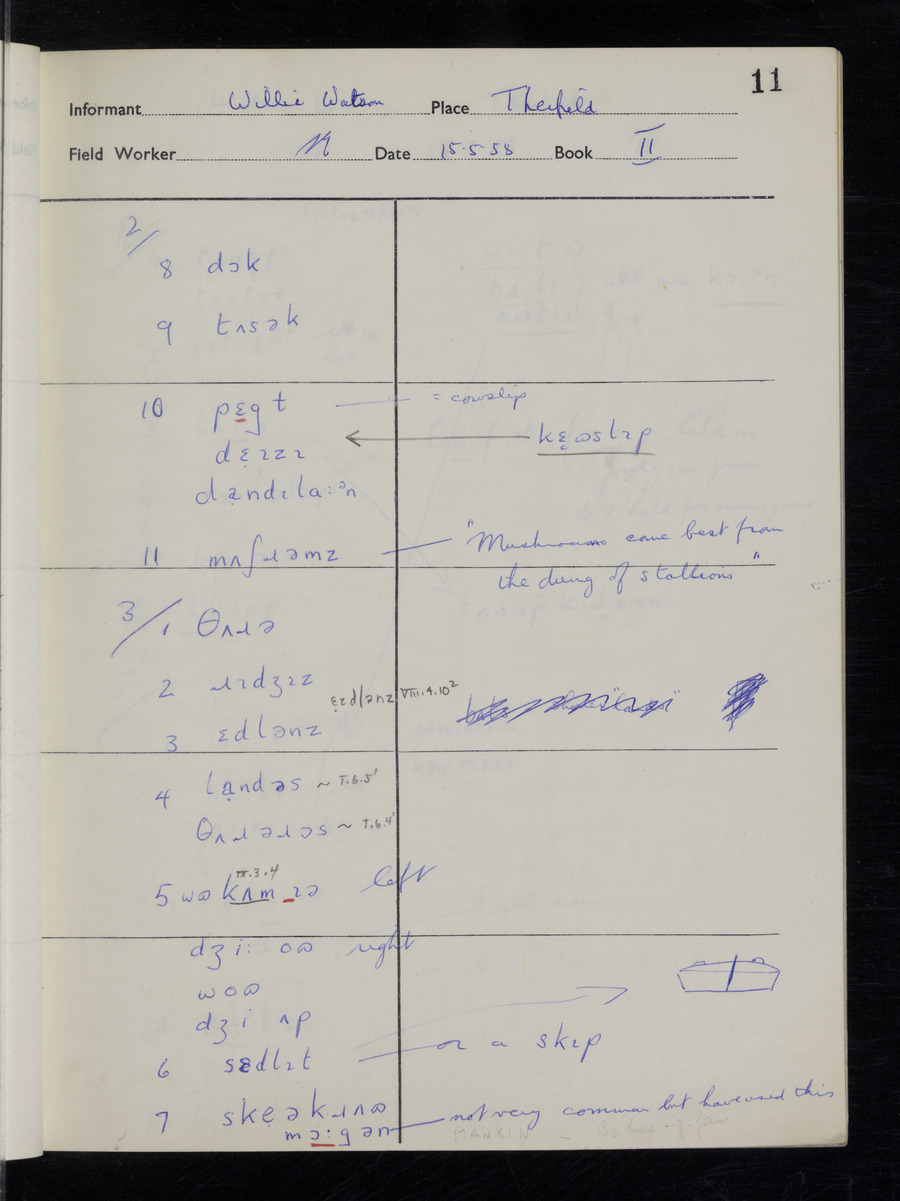 11
Informant Willie Watson Place Therfield
Field Worker Date 15·5·58 Book II
2/
8 dɔk
9 tʌsək
10 pɛgɫ = cowslip
kɛ̣ɷslɪp
dɛ̣ɪzɪ
dạndɪlaːᵊn
11 mʌʃɹəmz "Mushrooms come best from
the dung of stallions"
3/ 1 θʌɹə
2 ɹɪdʒɪz
ɛ̣ɪdlənz VIII.4.10²
3 ɛdlənz
4 lạndəs ~ I.6.5'
θʌɹəɹəs ~ I.6.4'
IX.3.4
5 wɷ kʌm ɪə left
dʒiː oɷ right
woɷ
dʒi ʌp
6 sɛdlɪt or a skɪp
7 skɛ̣əkɹʌɷ
mɔːgən not very common but have used this
MAWKIN